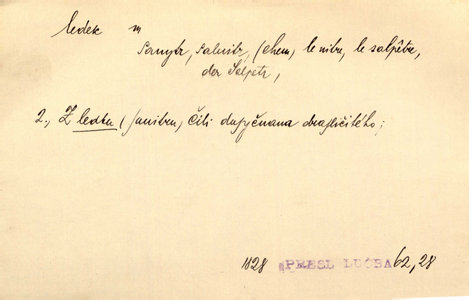 ledek m
sanytr, salnitr, (chem) le nitre, le salpêtre,
der Salpetr,
2., Z ledku (sanitru) čili dusyčnana drasličitého;
1828 PRESL LUČBA 62,28